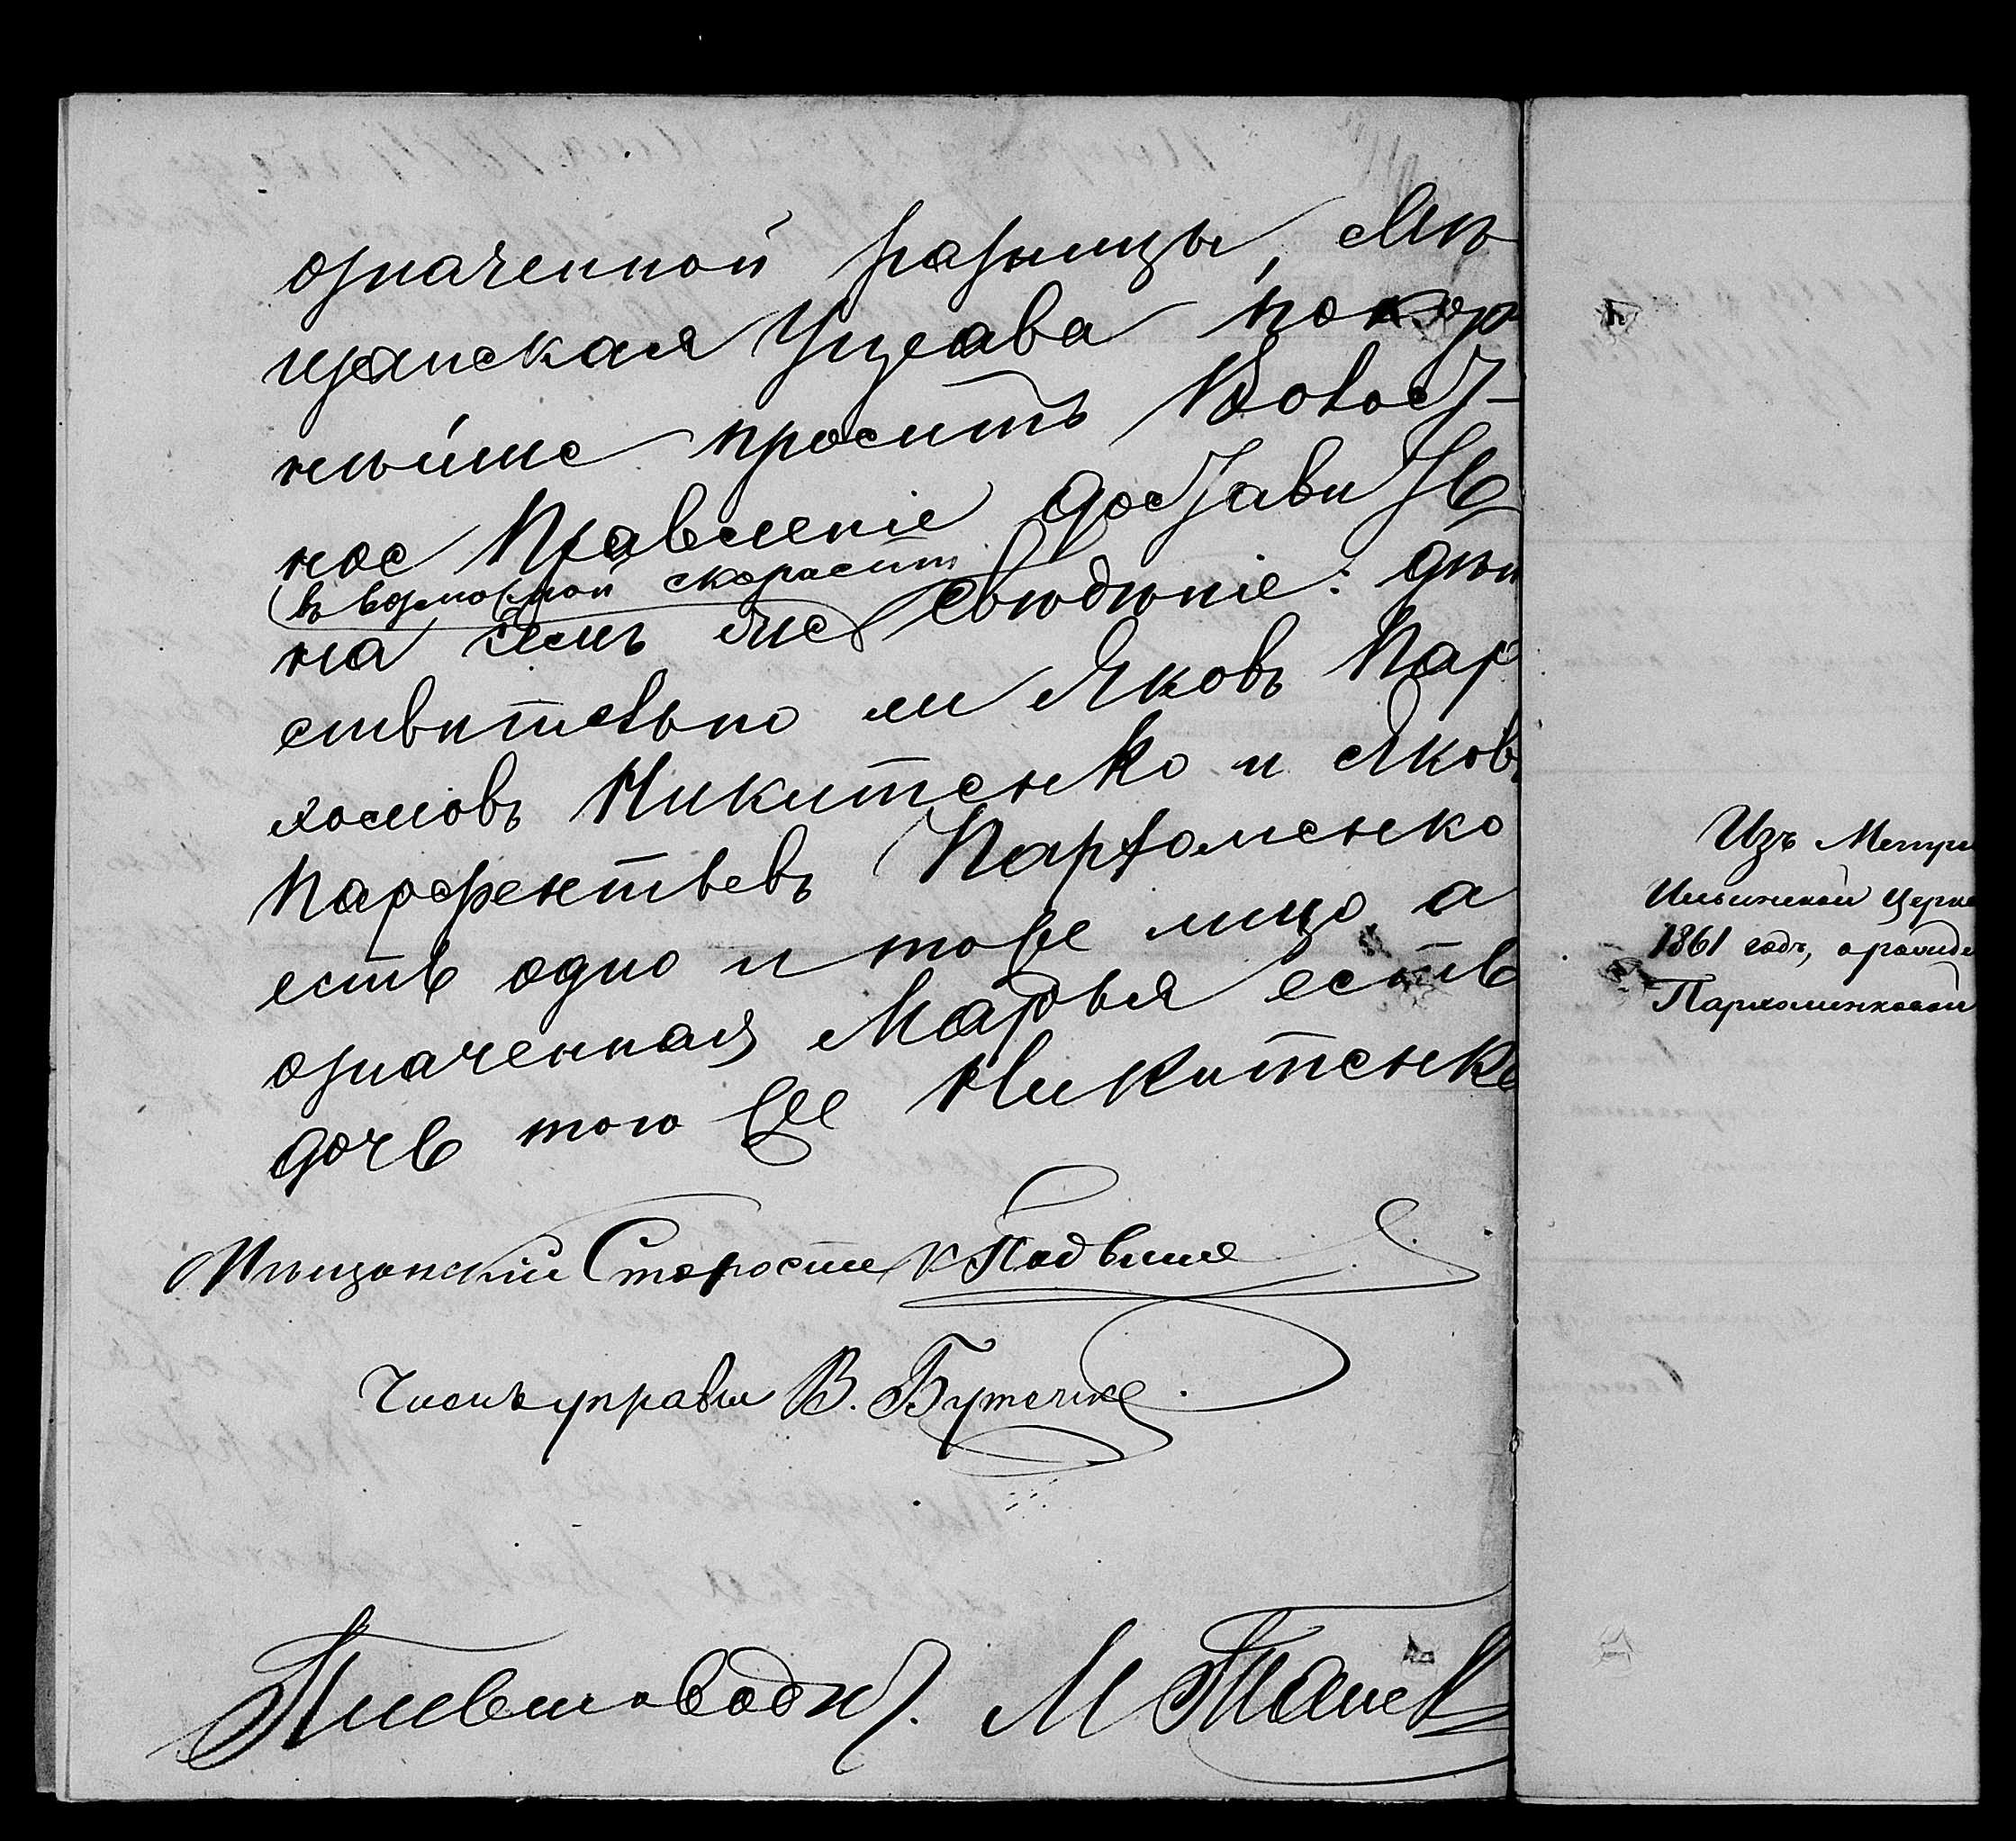 означенной разницы, Мѣ
щанская Управа покор
нѣйше проситъ Волост-
ное Правленіе доставить
въ возможной скорости
на семъ же свѣдѣніе: дѣй
ствительно ли Яковъ Пар
хомовъ Никитенко и Яковъ
Парфентьевъ Пархоменко
есть одно и тоже лицо, а
означенная Марья есть
дочь того же Никитенко
Мѣщанскій Староста
Членъ управы В. Бутенко
Письмоводит. М
Изъ Метри
Ильинской Церкв
1861 годъ, о рожде
Пархоменковой